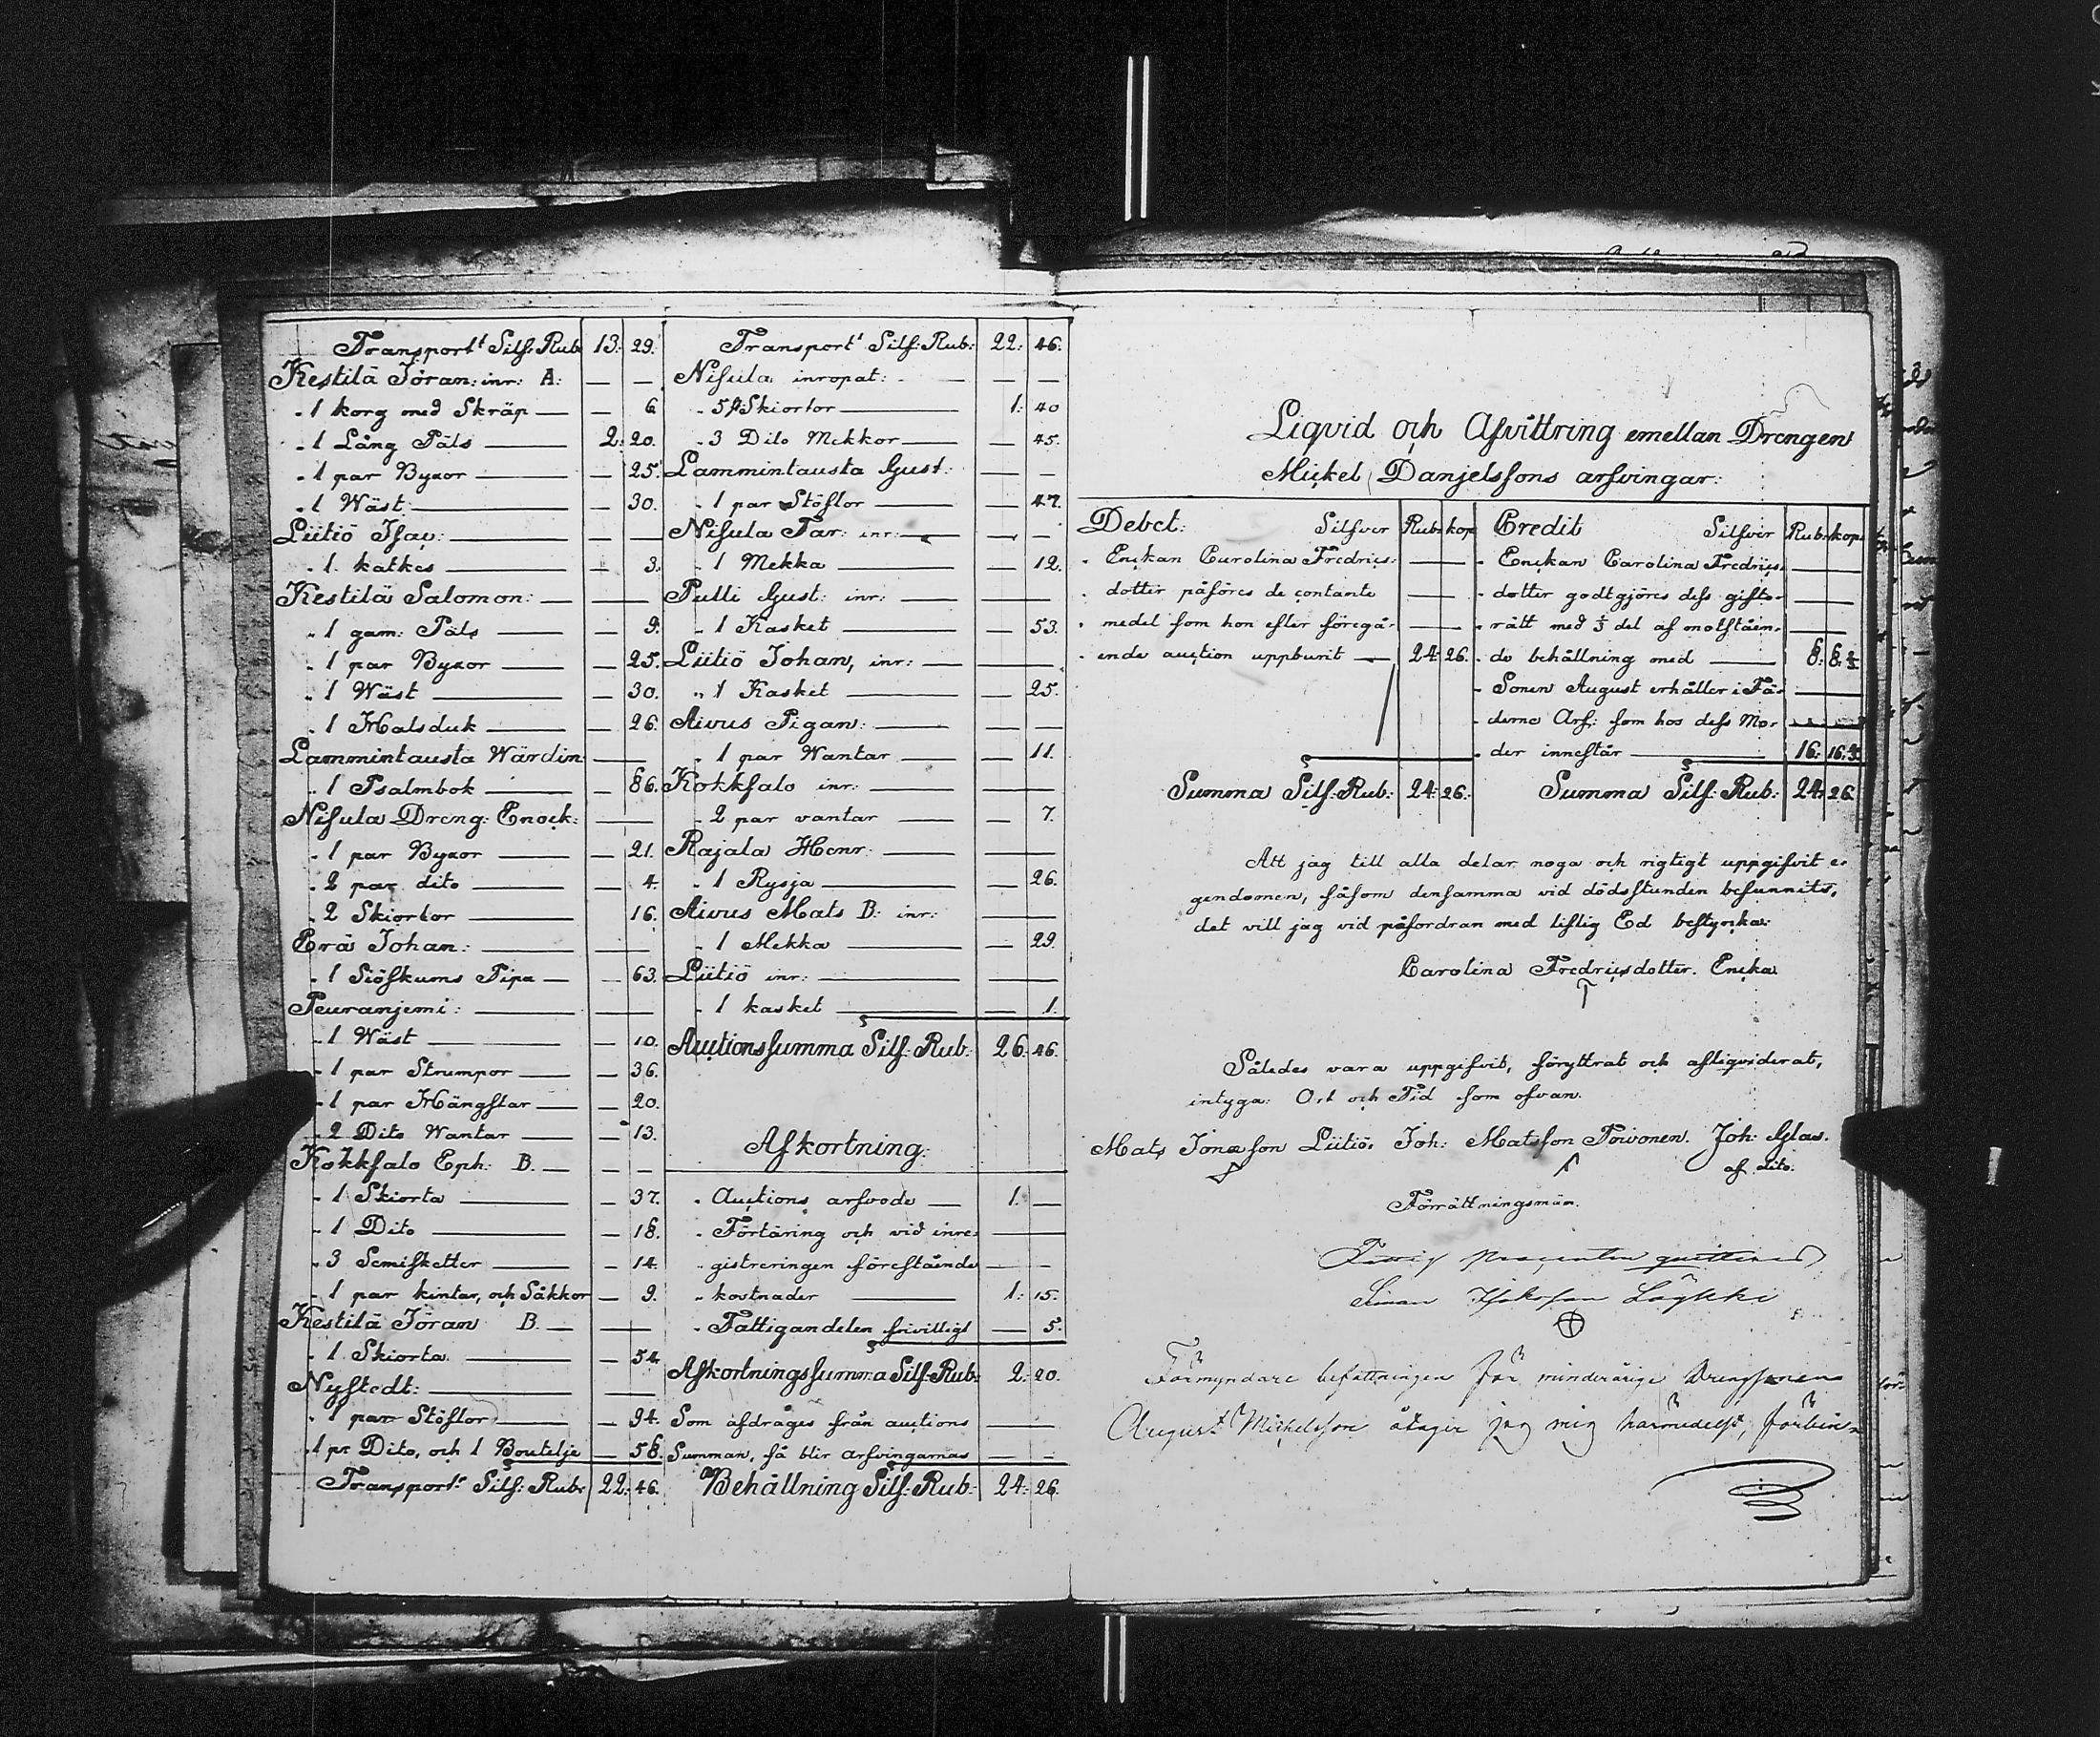 Transport Silf: Rub: 13: 29.
Kestilä Jöran: inr: A: — —
1 korg med Skräp — — 6
1 Lång Päls — 2: 20.
1 par Byxor — — 25.
1 Wäst: — — 30.
Liitiö Isac: — —
1 katkes — — 3.
Kestilä Salomon: — —
1 gam: Päls — — 9.
1 par Byxor — — 25.
1 Wäst — — 30.
1 Halsduk — — 26.
Lammintausta Wärdin — —
1 Psalmbok — — 86.
Nisula Dreng: Enock: — —
1 par Byxor — — 21.
2 par dito — — 4.
2 Skiortor — — 16.
Erä Johan: — —
1 Siöskums Pipa — — 63.
Peuranjemi: — —
1 Wäst — — 10.
1 par Strumpor — — 36.
1 par Hängslar — — 20.
2 Dito Wantar — — 13.
Kokksalo Eph: B. — — —
1 Skiorta — — 37.
1 Dito — — 18.
3 Semisketter — — 14.
1 par kintar, och Säkkor — — 9.
Kestilä Jöran B. — —
1 Skiorta. — — 54.
Nystedt: — —
1 par Stöflor — — 94.
1 pr Dito, och 1 Boutelje — — 58.
Transport: Silf: Rub: 22: 46.
Transport Silf: Rub: 22: 46.
Nisula inropat: — — —
5 st Skiortor — 1: 40
3 Dito Mekkor — — 45.
Lammintausta Gust: — —
1 par Stöflor — — 47.
Nisula Far: inr: — — —
1 Mekka — — 12.
Pulli Gust: inr: — —
1 Kasket — — 53.
Liitiö Johan, inr: — —
1 Kasket — — 25.
Aivus Pigan: — — —
1 par Wantar — — 11.
Kokksalo inr: — —
2 par vantar — — 7.
Rajala Henr: — —
1 Rysja — — 26.
Aivus Mats B: inr: — —
1 Mekka — — 29.
Liitiö inr: — —
1 kasket — — 1.
Auctionssumma Silf: Rub: 26: 46.
Afkortning:
Auctions arfvode — 1. —
Förtäring och vid inre- —
gistreringen förestående — —
kostnader — 1: 15.
Fattigandelen frivilligt — 5.
Afkortningssumma Silf: Rub: 2: 20.
Som afdrages från auctions —
Summan, så blir arfvingarnas — —
Behållning Silf: Rub: 24: 26.
Liqvid och Afvittring emellan Drengen
Mickel Danjelssons arfvingar:
Debet: Silfver Rub: kop
Enckan Carolina Fredrics- —
dotter påföres de contante —
medel som hon efter föregå- —
ende auction uppburit — 24: 26.
Summa Silf: Rub: 24: 26.
Credit Silfver Rub: kop:
Enckan Carolina Fredrics- —
dotter godtgöres dess gifto- —
rätt med 1/3 del af motståen- —
de behållning med — 8: 8 2/3
Sonen August erhåller i Fä- —
derne Arf: som hos dess Mo- —
der innestår — 16: 16 4/3
Summa Silf: Rub: 24: 26
Att jag till alla delar noga och rigtigt uppgifvit e-
gendomen, såsom densamma vid dödsstunden befunnits,
det vill jag vid påfordran med liflig Ed bestyrka:
Carolina Fredricsdotter. Encka
Således vara uppgifvit, föryttrat och afliqviderat,
intyga: Ort och Tid som ofvan.
Mats Jonasson Liitiö. Joh: Matsson Toivonen. Joh: Glas.
af dito.
Förrättningsmän.
quitteras
Simon
Förmyndare befattningen för minderårige Drengsonen
August Michelsson åtager jag mig härmedelst, förbin-